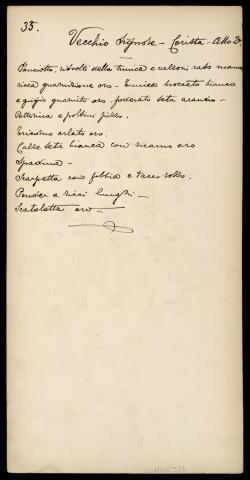 35.
Vecchio Signore - Corista - Atto 2º.
Panciotto, risvolti della tunica e calzoni raso
ricca guarnizione oro - Tunica broccato bianco
e grigio guarnita oro, foderata seta arancio -
Pettorina e polsini pizzo.
Tricorno orlato oro.
Calze seta bianca con ricamo oro
Spadina -
Scarpetta con fibbia e tacco rosso.
a ricci lunghi -
Scatoletta oro -